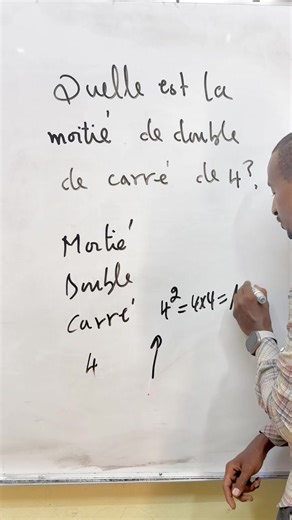 Quelle est la
moitié de double
de carré de 4?
Moitié
Double
Carré
4² = 4×4 = 1
4